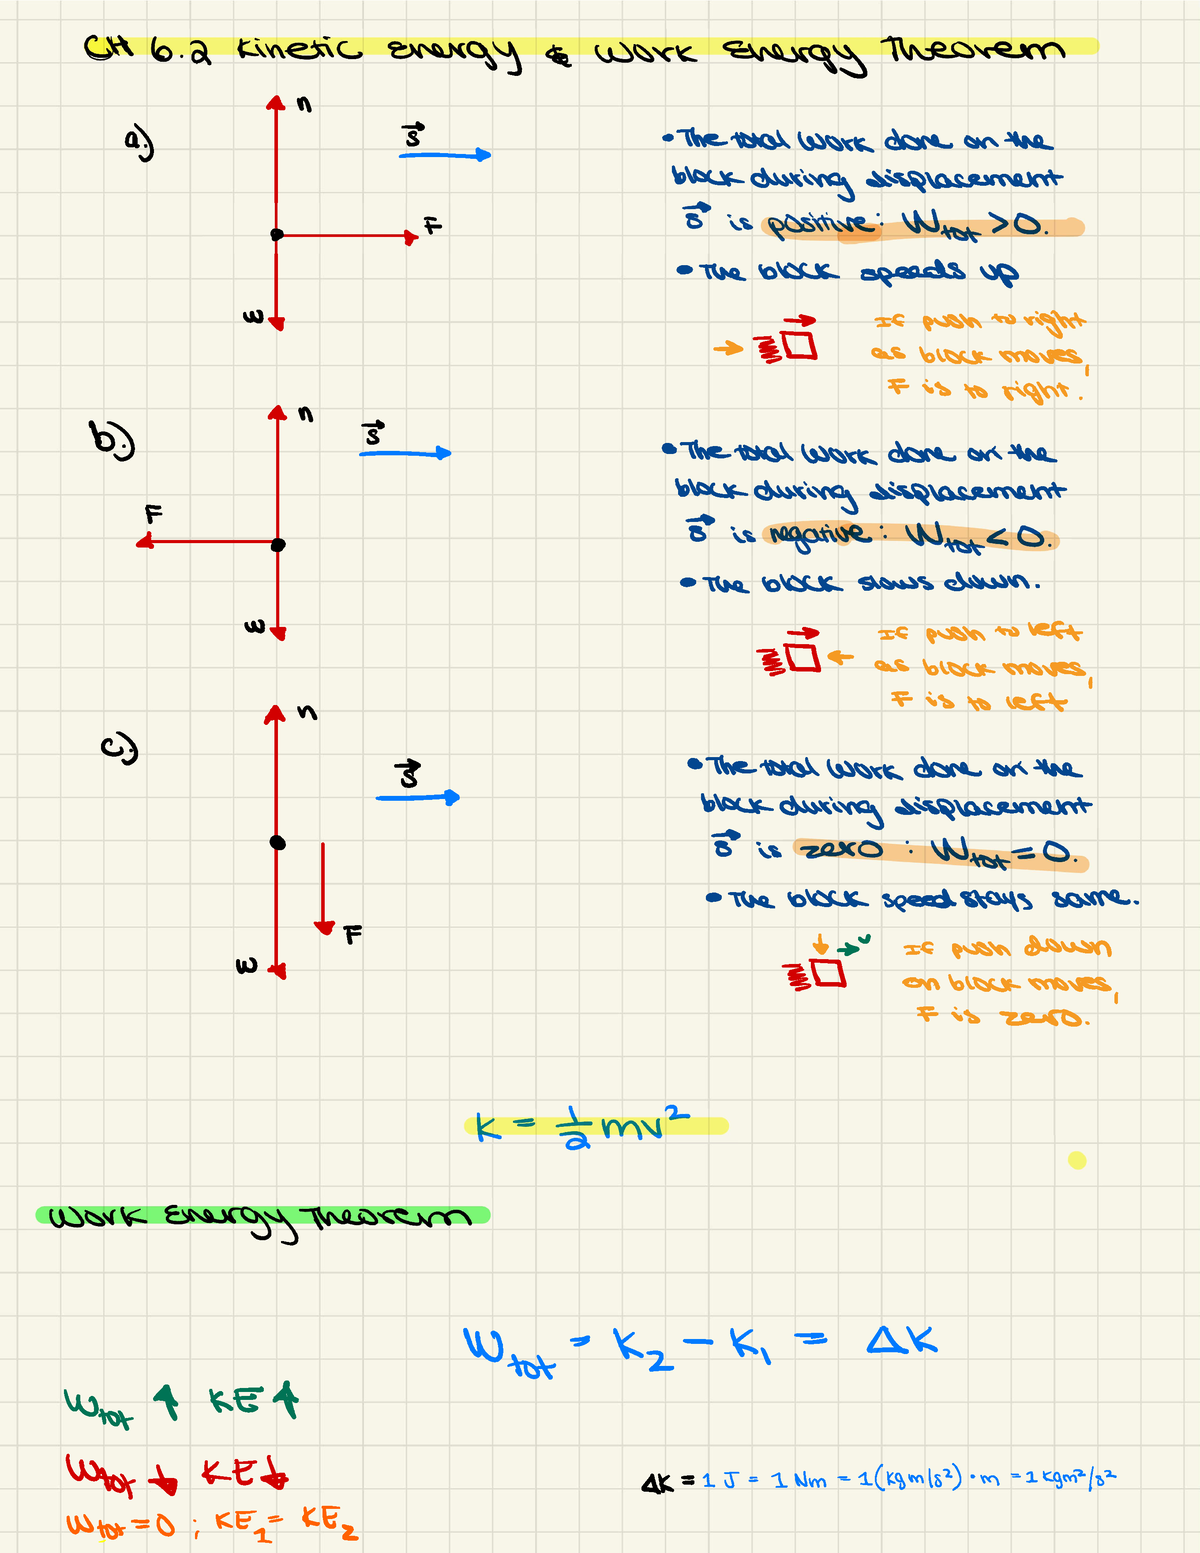 CH 6.2 Kinetic Energy & Work Energy Theorem
a.)
n
s
F
w
• The total work done on the
block during displacement
s is positive: Wtot > 0.
• The block speeds up
If push to right
as block moves,
F is to right.
b.)
n
s
F
w
• The total work done on the
block during displacement
s is negative: Wtot < 0.
• The block slows down.
If push to left
as block moves,
F is to left
c.)
n
s
F
w
• The total work done on the
block during displacement
s is zero : Wtot = 0.
• The block speed stays same.
v
If push down
on block moves,
F is zero.
K = 1/2 mv²
Work Energy Theorem
Wtot = K2 - K1 = ΔK
Wtot ↑ KE ↑
Wtot ↓ KE ↓
Wtot = 0 ; KE1 = KE2
ΔK = 1 J = 1 Nm = 1(kgm/s²) · m = 1 kgm²/s²